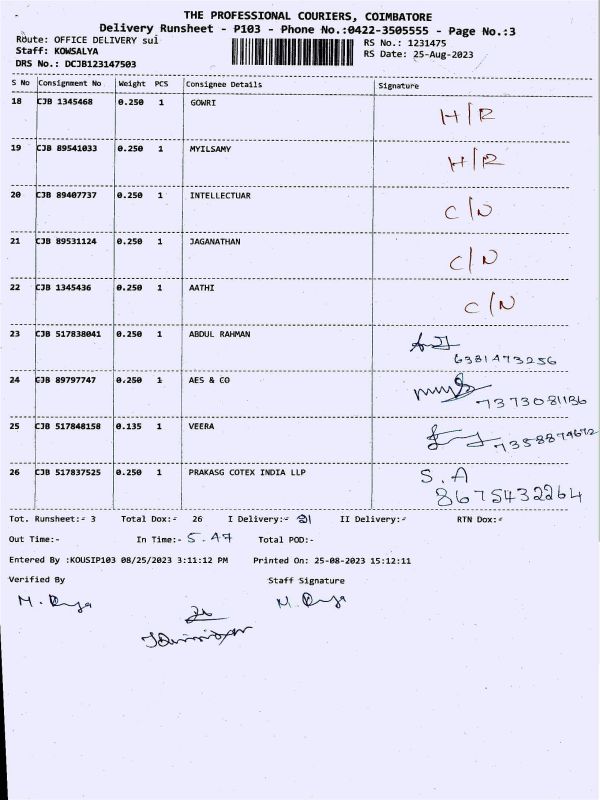 THE PROFESSIONAL COURIERS, COIMBATORE
Delivery Runsheet - P103 - Phone No.:0422-3505555 - Page No.:3
Route: OFFICE DELIVERY sui
RS No.: 1231475
Staff: KOWSALYA
RS Date: 25-Aug-2023
DRS No.: DCJB123147503
S No Consignment No Weight PCS Consignee Details Signature
18 CJB 1345468 0.250 1 GOWRI H/R
19 CJB 89541033 0.250 1 MYILSAMY H/R
20 CJB 89407737 0.250 1 INTELLECTUAR C/N
21 CJB 89531124 0.250 1 JAGANATHAN C/N
22 CJB 1345436 0.250 1 AATHI C/N
23 CJB 517838041 0.250 1 ABDUL RAHMAN
6381473256
24 CJB 89797747 0.250 1 AES & CO
7373081136
25 CJB 517848158 0.135 1 VEERA
7358874672
26 CJB 517837525 0.250 1 PRAKASG COTEX INDIA LLP S.A
8675432264
Tot. Runsheet:- 3 Total Dox:- 26 I Delivery:- 21 II Delivery:- RTN Dox:-
Out Time:- In Time:- 5.47 Total POD:-
Entered By :KOUSIP103 08/25/2023 3:11:12 PM Printed On: 25-08-2023 15:12:11
Verified By Staff Signature